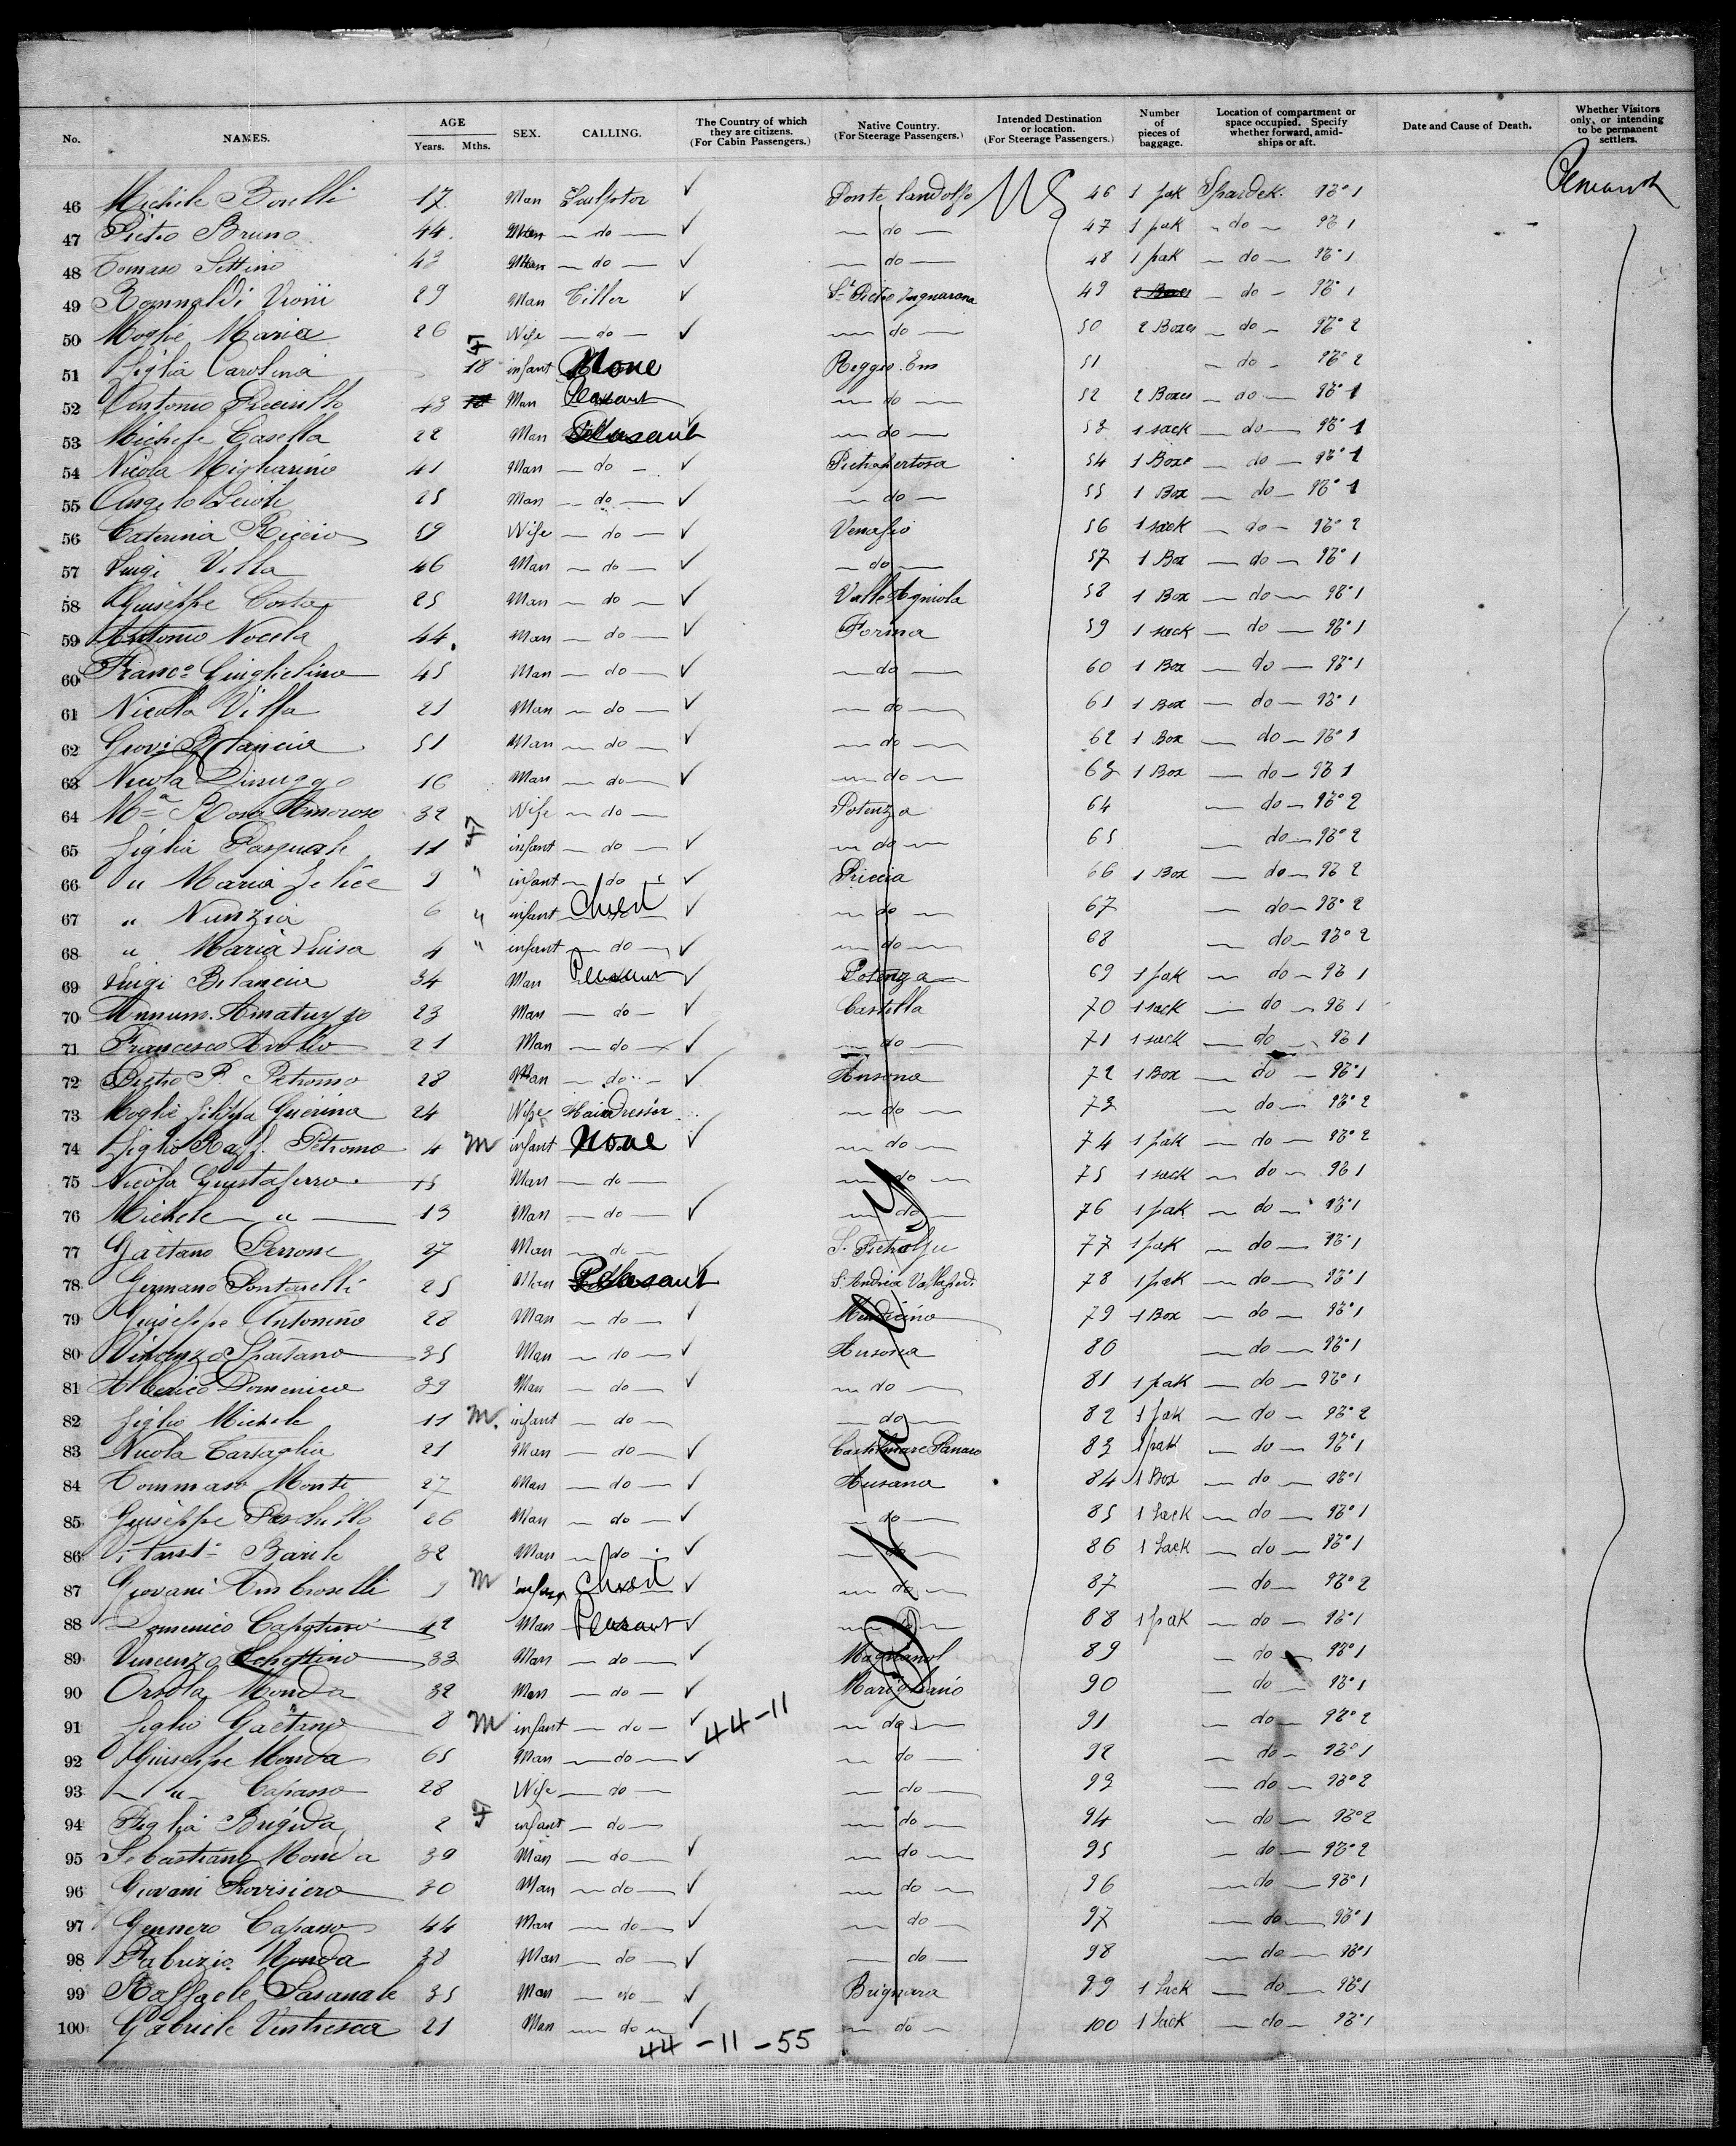 No. NAMES. AGE Years. Mths. SEX. CALLING. The Country of which they are citizens. (For Cabin Passengers.) Native Country. (For Steerage Passengers.) Intended Destination or location. (For Steerage Passengers.) Number of pieces of baggage. Location of compartment or space occupied. Specify whether forward, amidships or aft. Date and Cause of Death. Whether Visitors only, or intending to be permanent settlers.
46 Michele Borelli 17 Man Sculptor ✓ Ponte Landolfo US 46 1 pak Spardek. No 1
47 Pietro Bruno 44 Man do ✓ do 47 1 pak do No 1
48 Tomaso Settino 43 Man do ✓ do 48 1 pak do No 1
49 29 Man Tiller ✓ St Pietro 49 2 Boxes do No 1
50 Moglie Maria 26 Wife do ✓ do 50 2 Boxes do No 2
51 Figlia Carolina 18 F infant None Reggio Em 51 do No 2
52 Antonio 43 Man Peasant do 52 2 Boxes do No 1
53 Michele Casella 22 Man Peasant ✓ do 53 1 sack do No 1
54 Nicola Migliarino 41 Man do ✓ Pietrapertosa 54 1 Box do No 1
55 Angelo 25 Man do ✓ do 55 1 Box do No 1
56 Caterina Riccio 59 Wife do ✓ Venafro 56 1 sack do No 2
57 Luigi Villa 46 Man do ✓ do 57 1 Box do No 1
58 Giuseppe Costa 25 Man do ✓ Valle Agniola 58 1 Box do No 1
59 Antonio Nocela 44 Man do ✓ Formia 59 1 sack do No 1
60 Franco Guiglielino 45 Man do ✓ do 60 1 Box do No 1
61 Nicola Villa 21 Man do ✓ do 61 1 Box do No 1
62 Giovi Bilancia 51 Man do ✓ do 62 1 Box do No 1
63 Nicola Dinuzzo 16 Man do ✓ do 63 1 Box do No 1
64 Ma Rosa Amoroso 32 Wife do Potenza 64 do No 2
65 figlia Pasquale 11 F infant do ✓ do 65 do No 2
66 " Maria Felice 9 " infant do ✓ Riccia 66 1 Box do No 2
67 " Nunzia 6 " infant Child ✓ do 67 do No 2
68 " Maria Luisa 4 " infant do ✓ do 68 do No 2
69 Luigi Bilancia 34 Man Peasant ✓ Potenza 69 1 pak do No 1
70 Annum. Amatuzzo 23 Man do ✓ Castella 70 1 sack do No 1
71 Francesco 21 Man do ✓ do 71 1 sack do No 1
72 Pietro P. Petromo 28 Man do ✓ Ausona 72 1 Box do No 1
73 Moglie Filippa Guerina 24 Wife Hairdresser do 73 do No 2
74 figlio Raff. Petromo 4 M infant None ✓ do 74 1 pak do No 2
75 Nicola Giustaferro 15 Man do do 75 1 sack do No 1
76 Michele " 19 Man do ✓ do 76 1 pak do No 1
77 Gaetano Perrone 27 Man do 77 1 pak do No 1
78 Germano Pontarelli 25 Man Peasant ✓ S. Andrea 78 1 pak do No 1
79 Giuseppe Antonino 28 Man do ✓ 79 1 Box do No 1
80 Vincenzo Spaitano 35 Man do ✓ Ausonia 80 do No 1
81 Domenico 39 Man do ✓ do 81 1 pak do No 1
82 figlio Michele 11 M. infant do do 82 1 pak do No 2
83 Nicola Cartaglia 21 Man do ✓ 83 1 pak do No 1
84 Tommaso Monti 27 Man do ✓ Ausana 84 1 Box do No 1
85 Giuseppe 26 Man do ✓ do 85 1 Sack do No 1
86 Barile 32 Man do ✓ do 86 1 Sack do No 1
87 Giovani Ambroselli 9 M infant Child ✓ do 87 do No 2
88 Domenico 42 Man Peasant ✓ do 88 1 pak do No 1
89 Vincenzo Schettino 33 Man do ✓ 89 do No 1
90 Monda 32 Man do ✓ Marigliano 90 do No 1
91 figlio Gaetano 8 M infant do ✓ 44-11 do 91 do No 2
92 Giuseppe Monda 65 Man do ✓ do 92 do No 1
93 " Capasso 28 Wife do do 93 do No 2
94 Figlia Brigida 2 F infant do do 94 do No 2
95 Sebastiano Monda 39 Man do ✓ do 95 do No 2
96 Giovani Provisiero 30 Man do ✓ do 96 do No 1
97 Gennero Capasso 44 Man do ✓ do 97 do No 1
98 Fabrizio Monda 38 Man do ✓ do 98 do No 1
99 Raffaele Pasanale 35 Man do ✓ Brignara 99 1 Sack do No 1
100 Gabriele Ventresca 21 Man do ✓ do 100 1 Sack do No 1
44-11-55